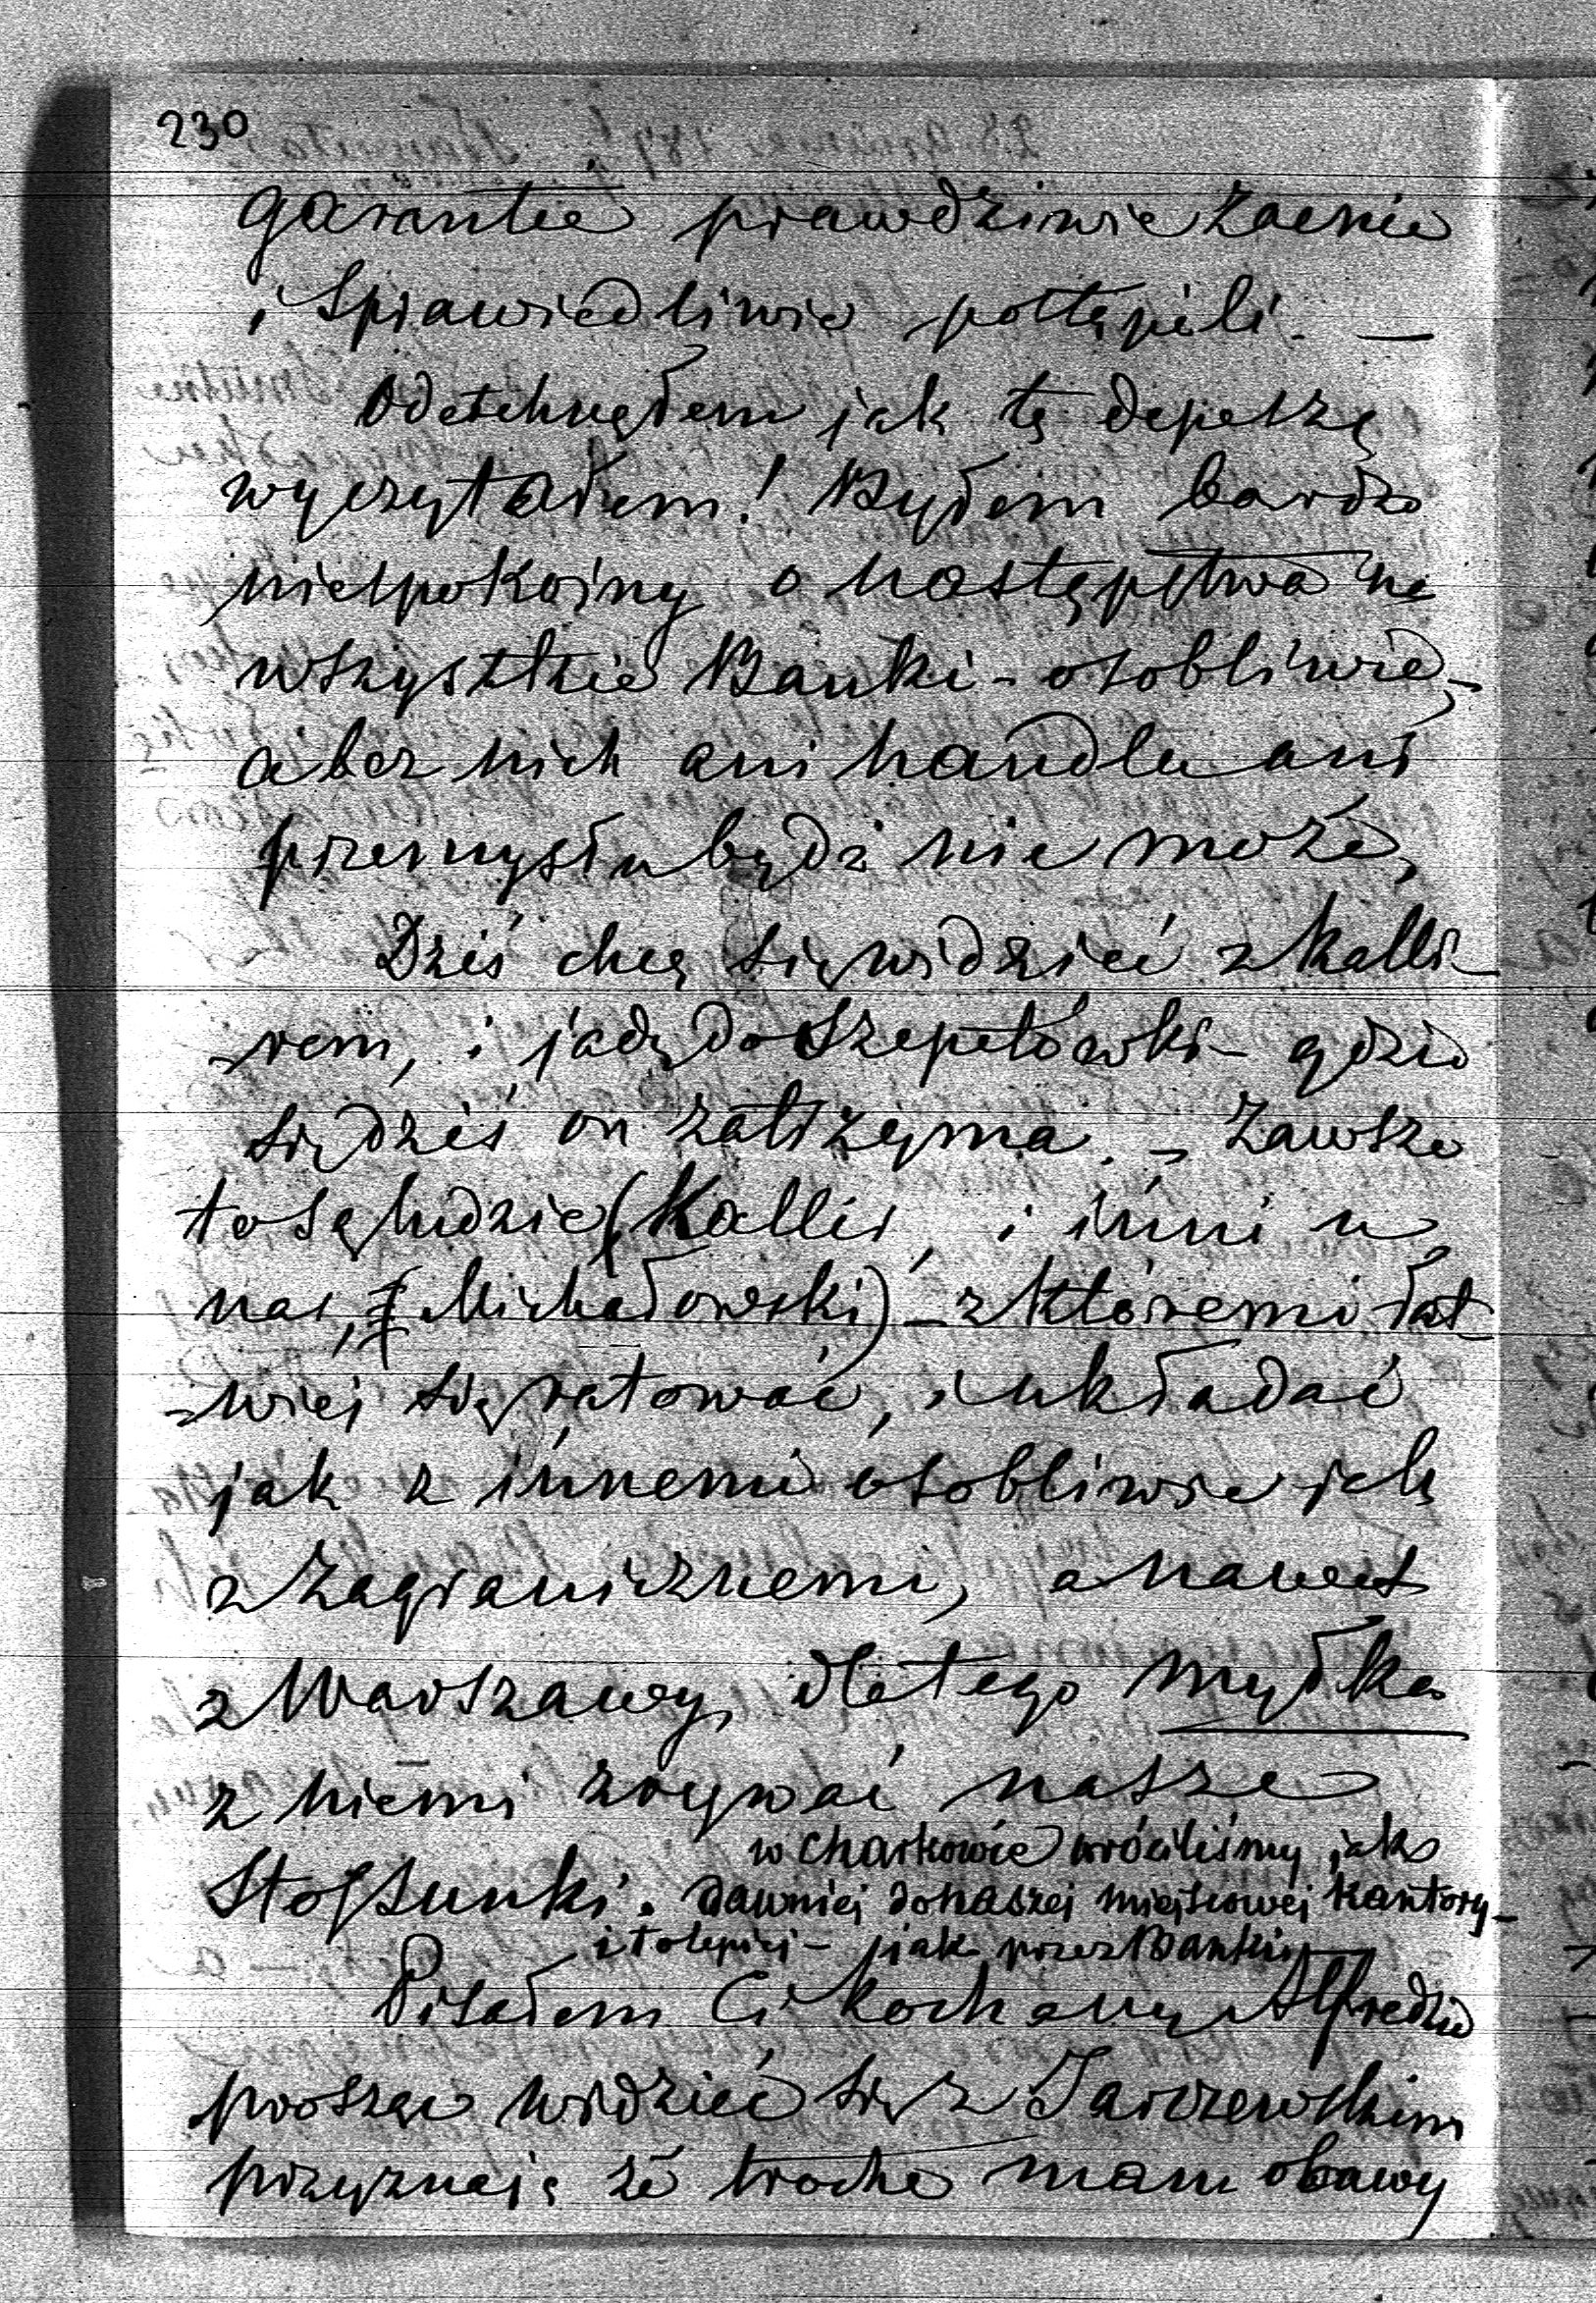 230
garantie prawdziwie zacnie
i Sprawiedliwie postąpili. —
Odetchnąłem jak tę depeszę
wyczytałem! Byłem bardzo
niespokojny o następstwa na
wszystkie Banki - osobliwie -
a bez nich ani handlu ani
przemysłu będź nie może,
Dziś chcę się widzieć z Kalli-
rem, i jadę do Szepetówki - gdzie
się dziś on zatrzyma. - Zawsze
to są ludzie (Kallir, i inni u
nas, (Michałowski) - z któremi łat-
-wiej się ratować, i układać
jak z innemi osobliwie jak
z Zagranicznemi, a nawet
z Warszawy, dla tego myłka
z niemi zrywać nasze
Stossunki. w Charkowie wróciliśmy jak
dawniej do naszej miejscowej Kantory -
i to lepiej - jak przez Banki
Pisałem Ci kochany Alfredzie
prosząc widzieć się z Jarczewskim
przyznaję że trochę mam obawy